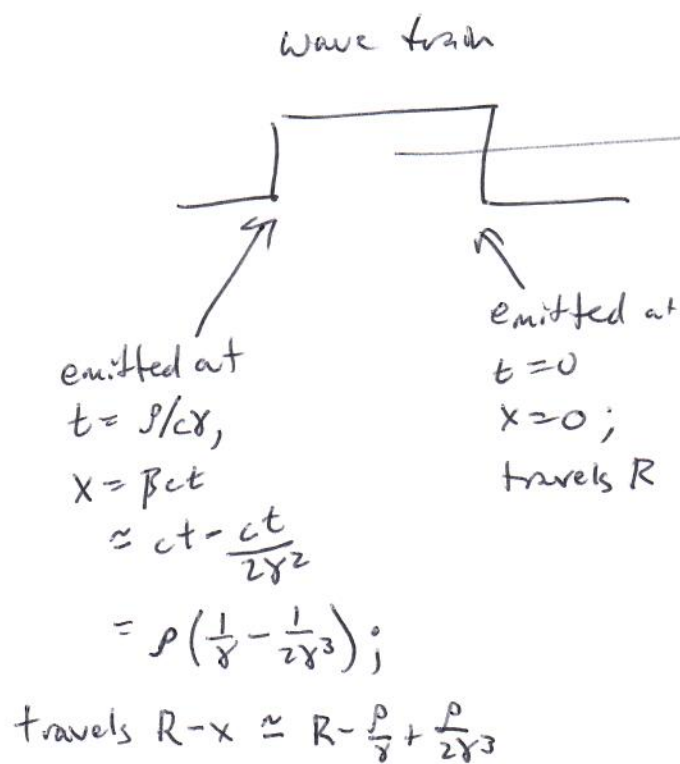 wave train
emitted at
t = ρ/cγ,
x = βct
≃ ct - ct/2γ²
= ρ(1/γ - 1/2γ³);
travels R-x ≃ R - ρ/γ + ρ/2γ³
emitted at
t = 0
x = 0;
travels R